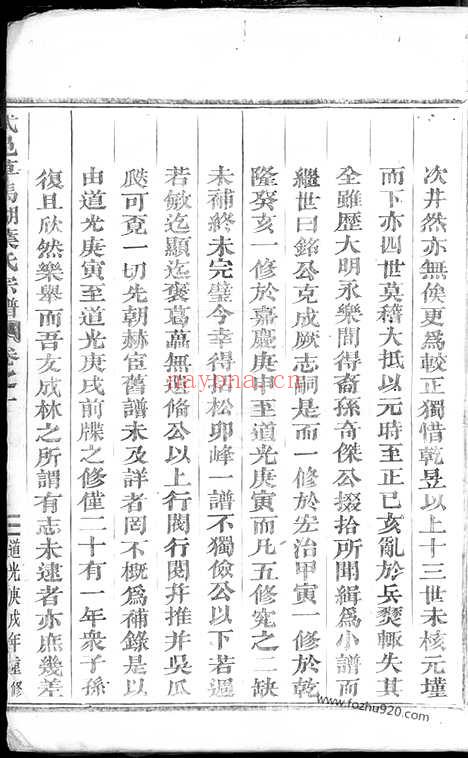 次井然亦無俟更為較正獨惜乾昱以上十三世未核元墐
而下亦四世莫稽大抵以元時至正已亥亂於兵燹輙失其
全雖歷大明永樂間得裔孫奇傑公掇拾所聞緝為小譜而
繼世曰銘公克成厥志嗣是而一修於宏治甲寅一修於乾
隆癸亥一修於嘉慶庚申至道光庚寅而凡五修究之二缺
未補終未完璧今幸得中松卯峰一譜不獨儉公以下若遲
若敏迄顯迄褒葛藟無遺脩公以上行閥行閱并推并吳瓜
瓞可覔一切先朝赫宦舊譜未及詳者罔不概為補錄是以
由道光庚寅至道光庚戌前牒之修僅二十有一年衆子孫
復且欣然樂舉而吾友成林之所謂有志未逮者亦庶幾差
邑車馬湖葉氏宗譜 卷之一
道光庚戌年重修
naypna.com
www.fozhu920.com